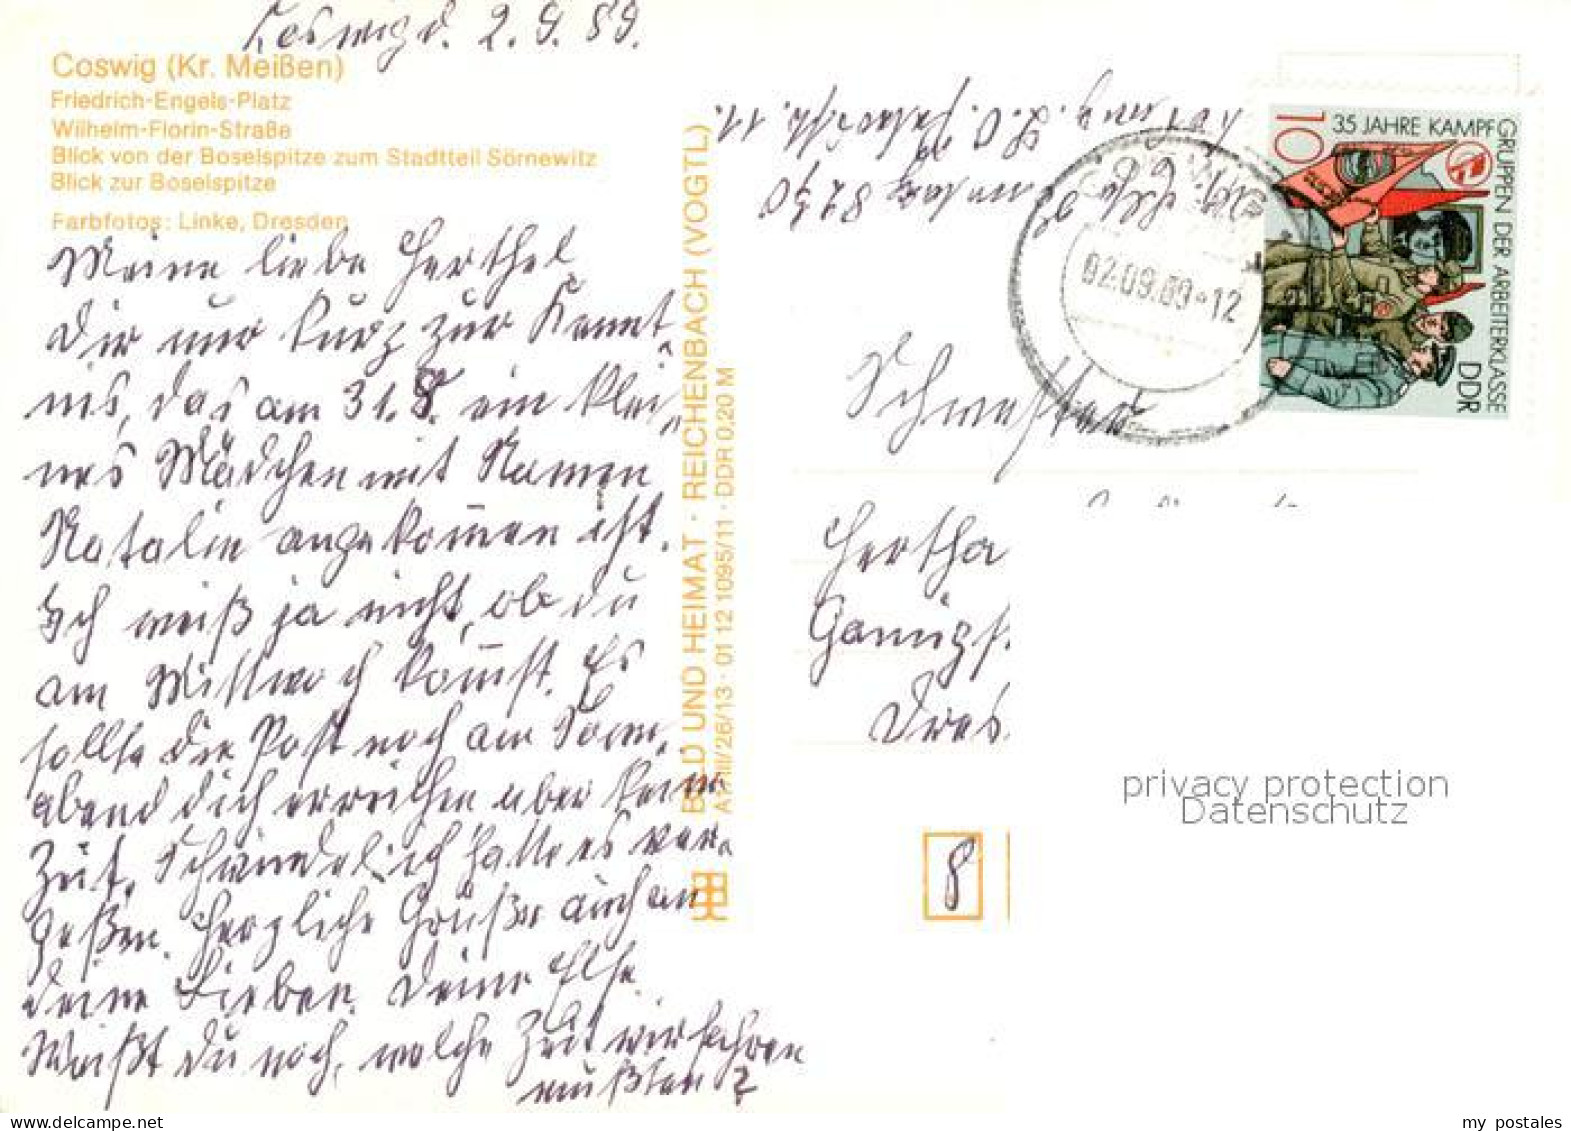 Coswig d. 2.9.89.
Coswig (Kr. Meißen)
Friedrich-Engels-Platz
Wilhelm-Florin-Straße
Blick von der Boselspitze zum Stadtteil Sörnewitz
Blick zur Boselspitze
Farbfotos: Linke, Dresden
Meine liebe Herthel
Dir nur kurz zur Kennt-
nis, das am 31.8. ein klei-
nes Mädchen mit Namen
Natalie angekommen ist.
Ich weiß ja nicht, ob du
am Mittwoch kommst. Es
sollte die Post noch am Sonn-
abend dich erreichen aber keine
Zeit. Schwindel ich hatte es ver-
geßen. Herzliche Grüße auch an
deine Lieben. Deine Else
Weißt du noch, welche Zeit wir fahren
mußten?
BILD UND HEIMAT · REICHENBACH (VOGTL)
A1/III/26/13 · 01 12 1095/11 · DDR 0,20 M
8270
02.09.89-12
10
35 JAHRE KAMPFGRUPPEN DER ARBEITERKLASSE
DDR
Schwester
Hertha
Dres
8
privacy protection
Datenschutz
my postales